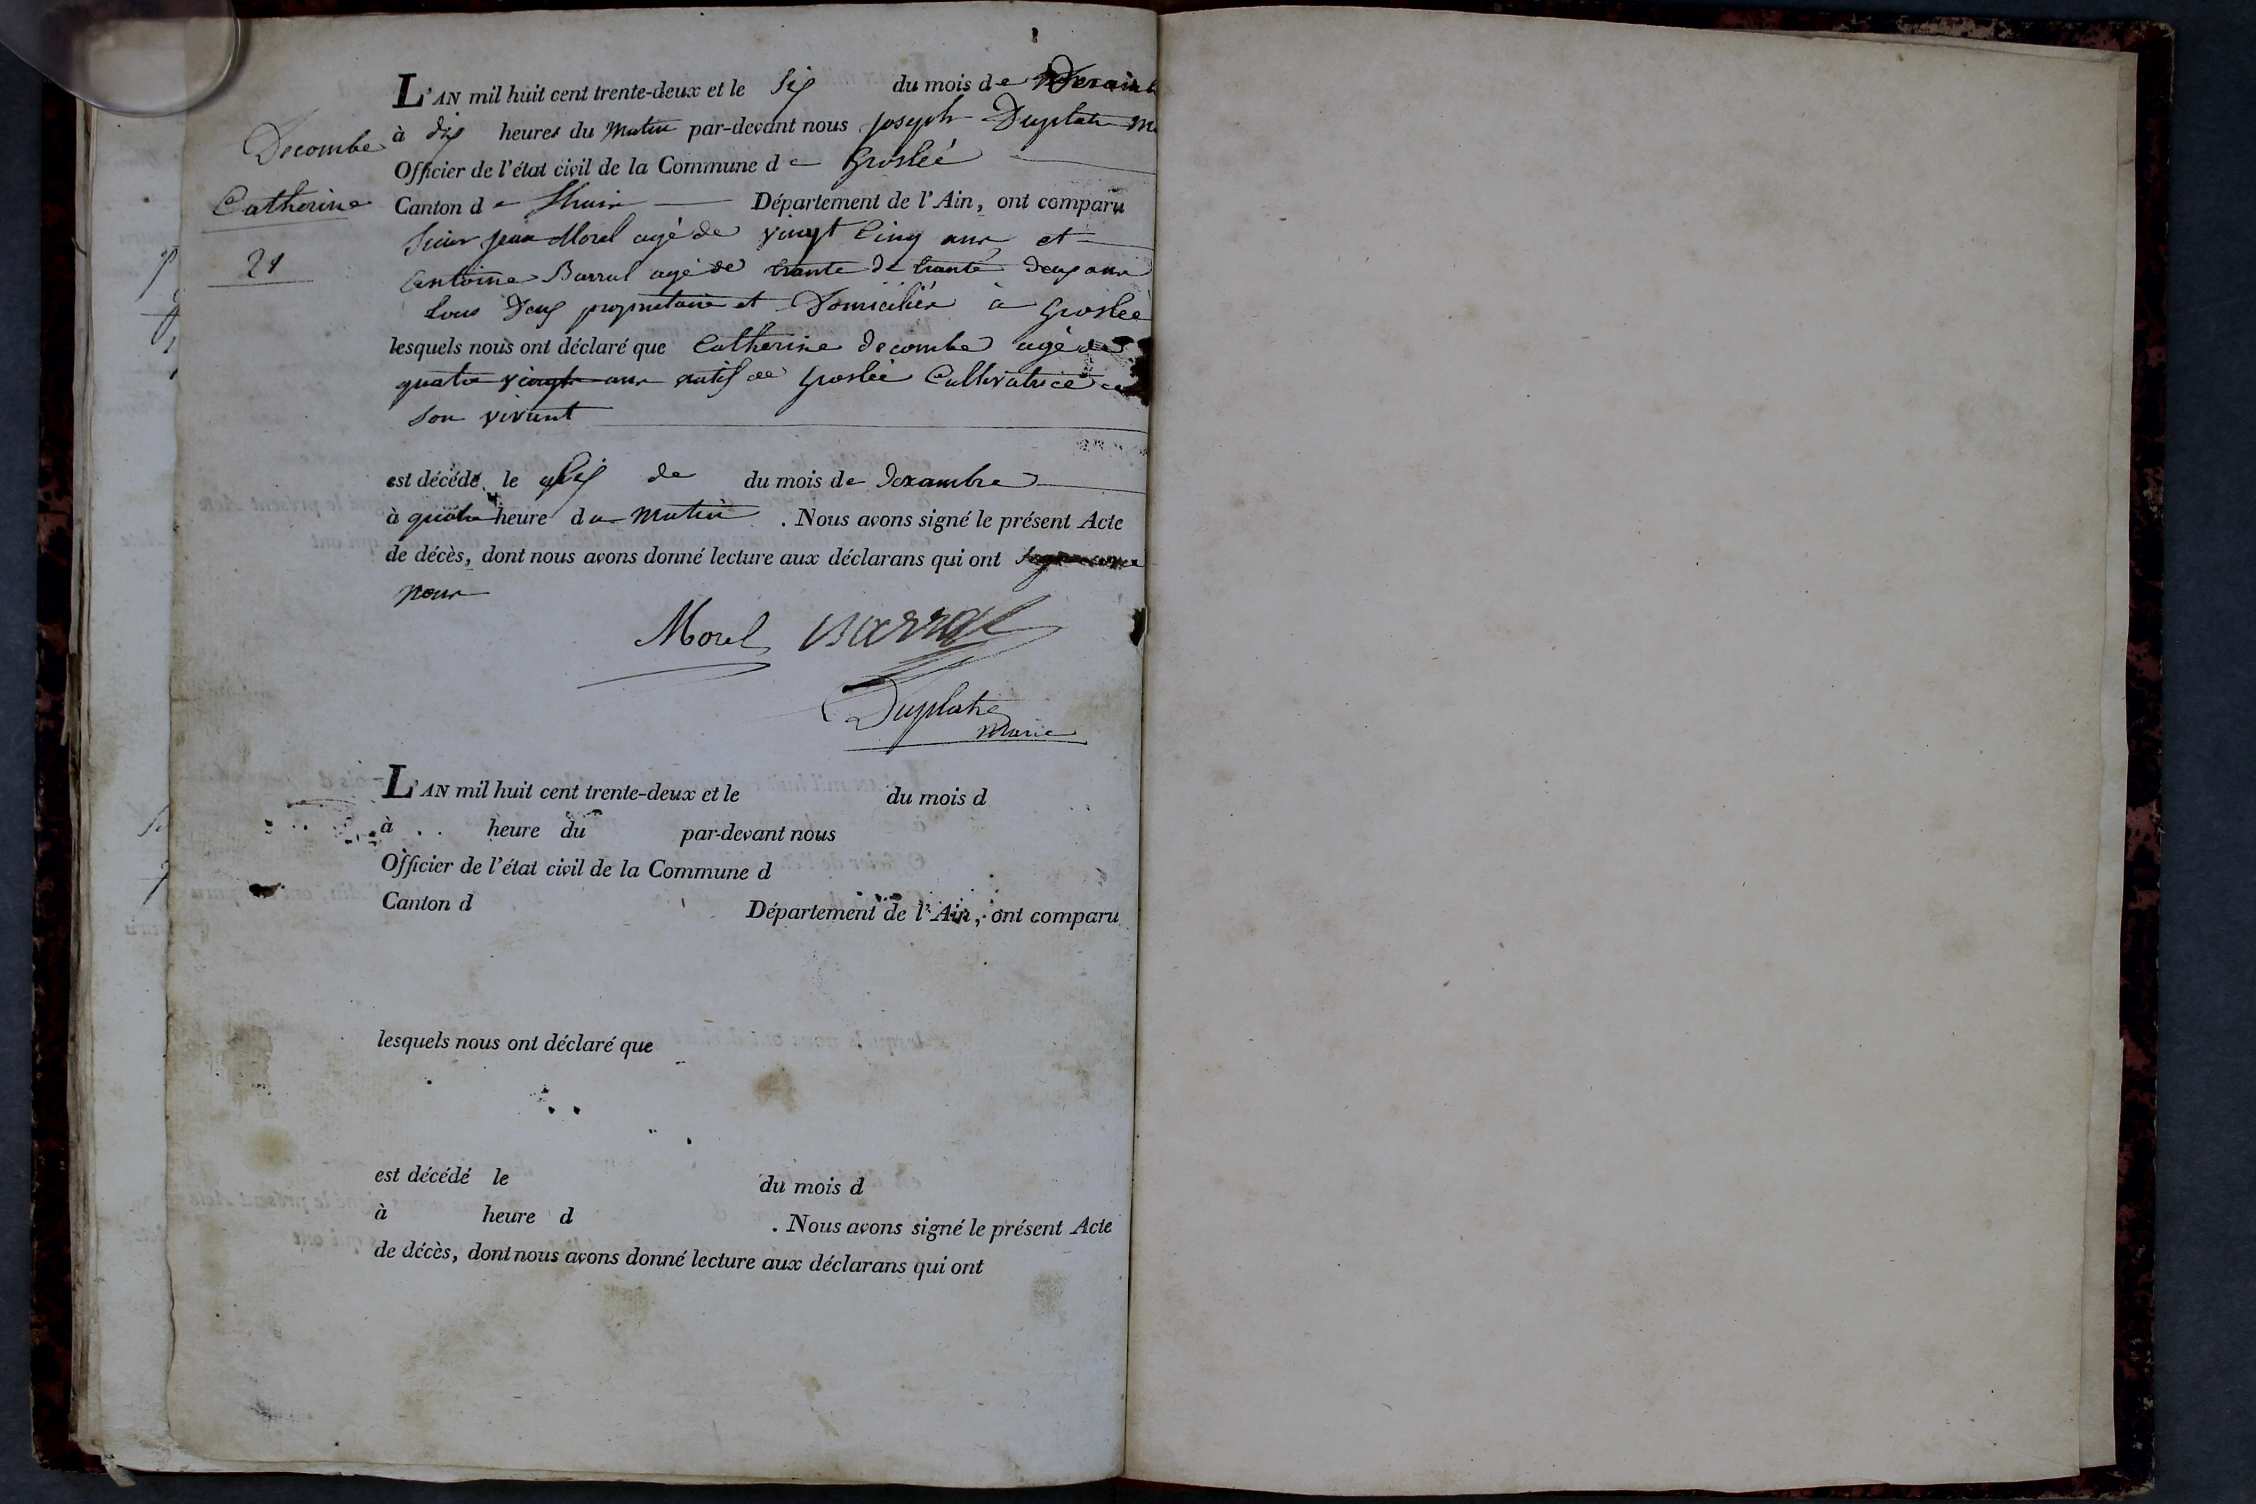 Decombe
Catherine
21
L'AN mil huit cent trente-deux et le Six du mois de
à dix heures du Matin par-devant nous joseph Duplatre
Officier de l'état civil de la Commune de Groslée
Canton de Lhuis Département de l'Ain, ont comparu
Sieur jean Morel agé de vingt Cinq ans et
antoine Barral agé de trante de trante deux ans
tous Deux propriétaire et Domiciliés à Groslée
lesquels nous ont déclaré que Catherine decombe agé de
quatre vingt ans natif de Groslée Cultivatrice
son vivant
est décédé le six de du mois de dexambre
à quatre heure du Matin . Nous avons signé le présent Acte
de décès, dont nous avons donné lecture aux déclarans qui ont
nous
Morel Barral
Duplatre
Maire
L'AN mil huit cent trente-deux et le du mois d
à heure du par-devant nous
Officier de l'état civil de la Commune d
Canton d Département de l'Ain, ont comparu
lesquels nous ont déclaré que
est décédé le du mois d
à heure d . Nous avons signé le présent Acte
de décès, dont nous avons donné lecture aux déclarans qui ont